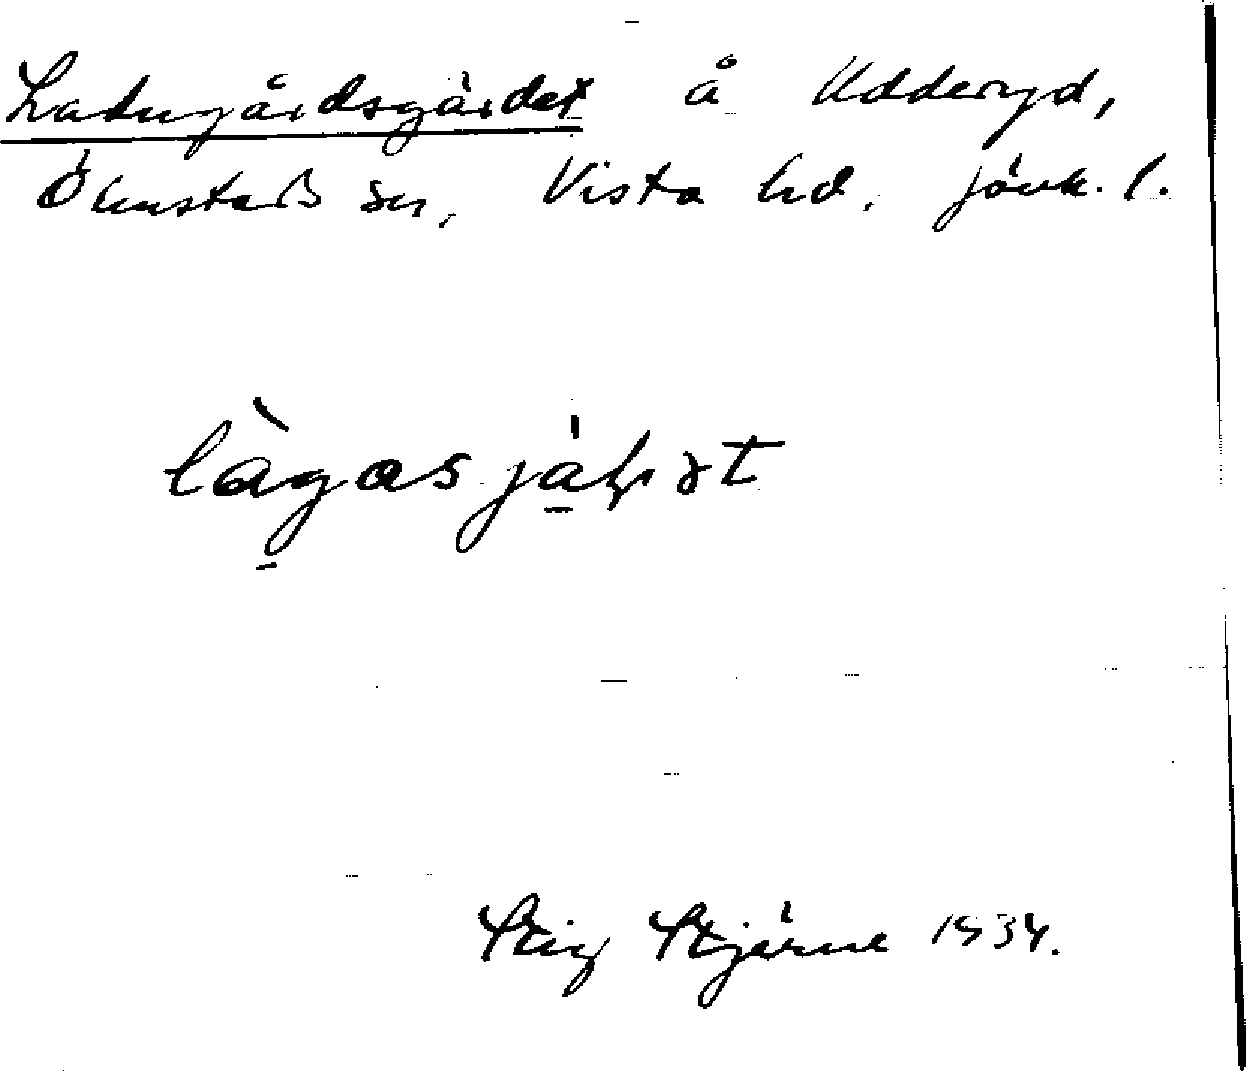 Ladugårdsgärdet å Udderyd,
Ölmstads sn, Vista hd, Jönk. l.
Stig Stjärne 1934.